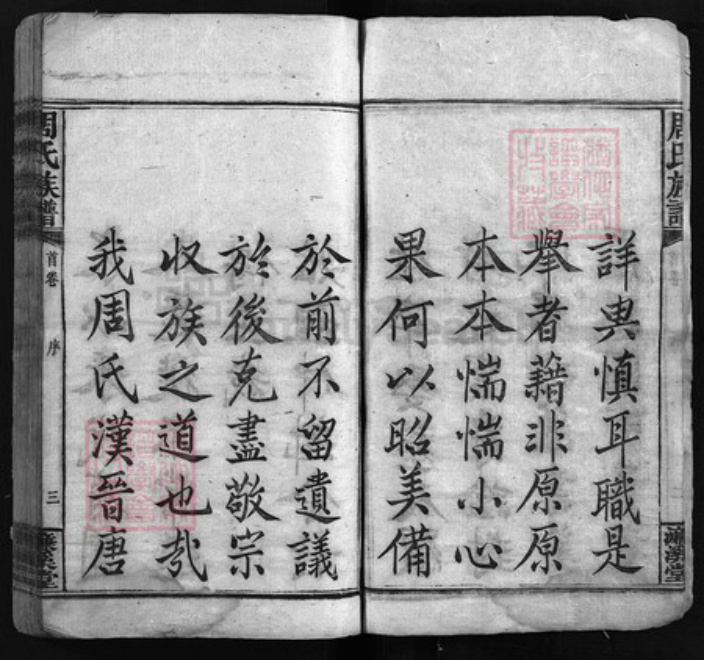 周氏族譜
詳與慎耳職是
舉者藉非原原
本本惴惴小心
果何以昭美備
於前不留遺議
於後克盡敬宗
收族之道也哉
我周氏漢晉唐
周氏族譜
首卷
序
三
濂溪堂